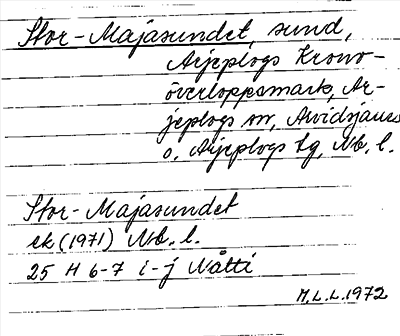 Stor-Majasundet, sund,
Arjeplogs Krono-
överloppsmark, Ar-
jeplogs sn, Arvidsjaurs
o. Arjeplogs tg, Nb. l.
Stor-Majasundet
ek (1971) Nb. l.
25 H 6-7 i-j Nåtti
M.L.L. 1972